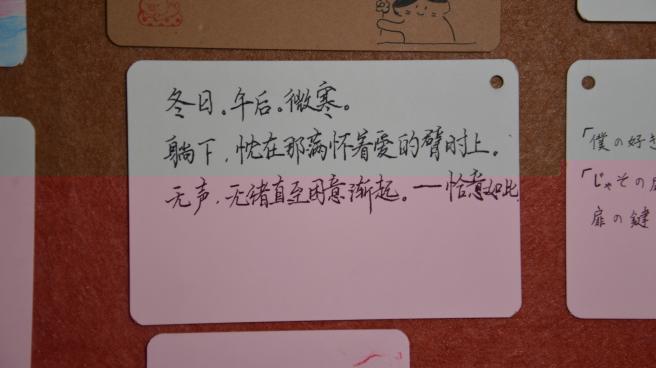 冬日。午后。微寒。
躺下，忱在那满怀着爱的臂时上。
无声，无绪直至困意渐起。——恰意如此
「僕の好き
「じゃその
扉の鍵